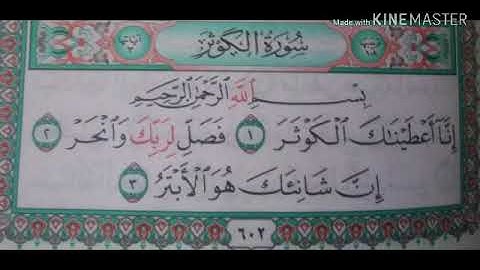 Made with KINEMASTER
سُورَةُ الْكَوْثَرِ
بِسْمِ اللَّهِ الرَّحْمَٰنِ الرَّحِيمِ
إِنَّآ أَعْطَيْنَٰكَ ٱلْكَوْثَرَ ١ فَصَلِّ لِرَبِّكَ وَٱنْحَرْ ٢
إِنَّ شَانِئَكَ هُوَ ٱلْأَبْتَرُ ٣
٦٠٢